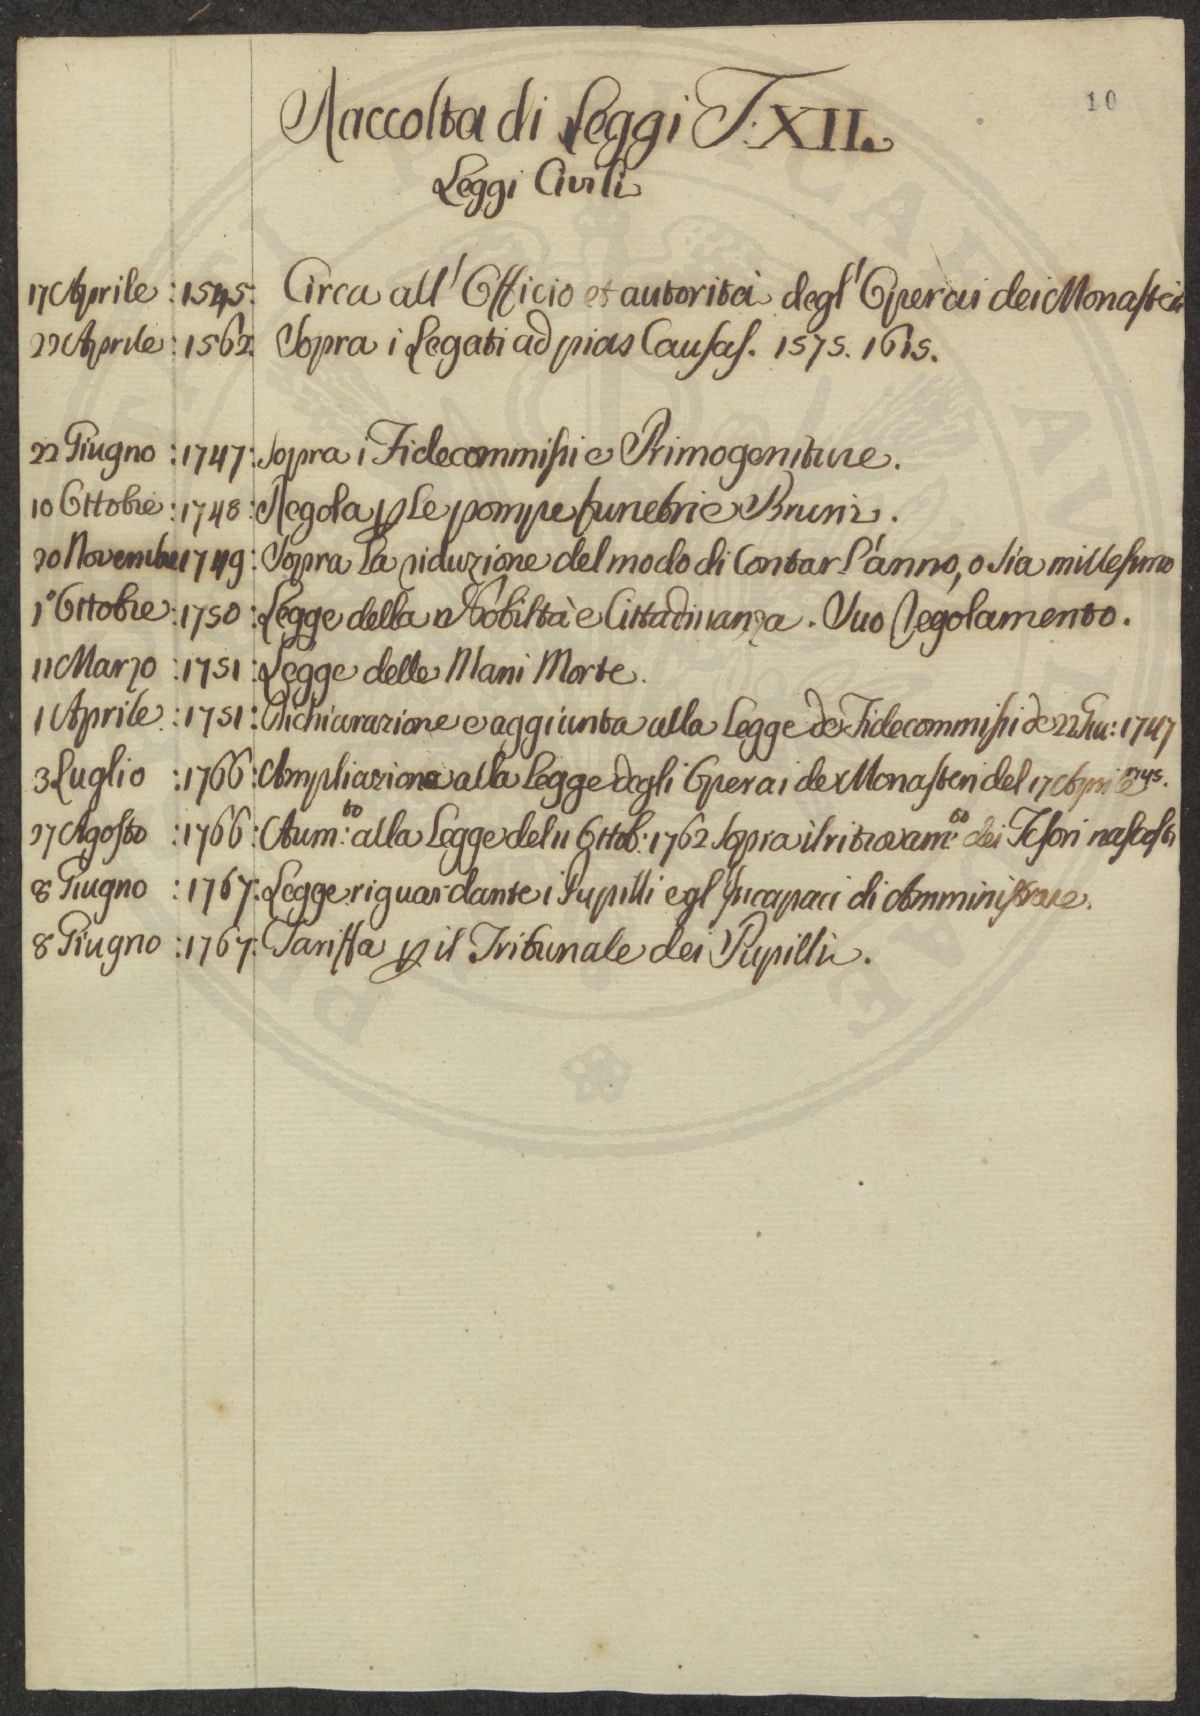 10
Raccolta di Leggi T. XII.
Leggi Civili
17 Aprile : 1545: Circa all' Officio et autorità degl' Operai dei Monasteri
22 Aprile : 1562: Sopra i Legati ad pias Causas. 1575. 1615.
22 Giugno : 1747: Sopra i Fidecommissi e Primogeniture.
10 Ottobre : 1748: Regola p le pompe funebri e Bruni.
20 Novembre 1749: Sopra la riduzione del modo di Contar l'anno, o sia millesimo
1° Ottobre : 1750: Legge della Nobiltà e Cittadinanza. Suo regolamento.
11 Marzo : 1751: Legge delle Mani Morte.
1 Aprile : 1751: Dichiarazione e aggiunta alla Legge de Fidecommissi de 22 Giu: 1747
3 Luglio : 1766: Ampliazione alla Legge degli Operai de Monasteri del 17 Aprile 1545.
27 Agosto : 1766: Aum:to alla Legge del 11 Ottob: 1762 sopra il ritrovam:to dei Tesori nascosti
8 Giugno : 1767: Legge riguardante i Pupilli e gl' Incapaci di Amministrare.
8 Giugno : 1767: Tariffa p il Tribunale dei Pupilli.